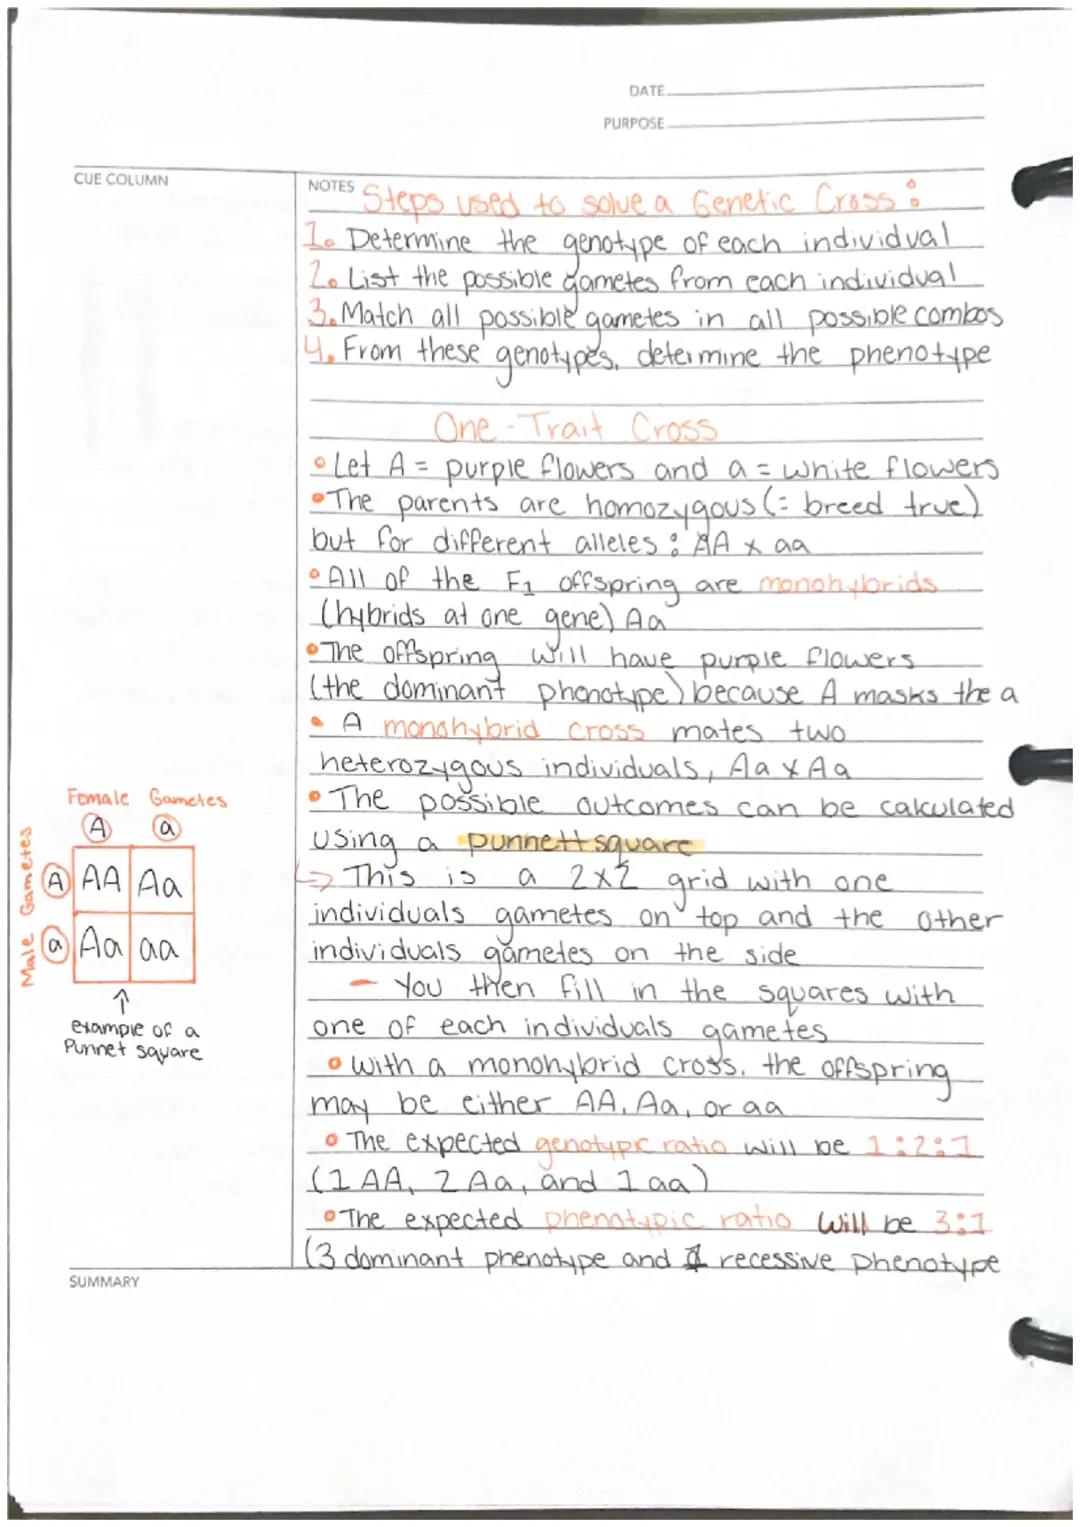 DATE
PURPOSE
CUE COLUMN
NOTES Steps used to solve a Genetic Cross:
1. Determine the genotype of each individual
2. List the possible gametes from each individual
3. Match all possible gametes in all possible combos
4. From these genotypes, determine the phenotype
One-Trait Cross
• Let A = purple flowers and a = white flowers
• The parents are homozygous (= breed true)
but for different alleles: AA x aa
• All of the F1 offspring are monohybrids
(hybrids at one gene) Aa
• The offspring will have purple flowers
(the dominant phenotype) because A masks the a
• A monohybrid cross mates two
heterozygous individuals, Aa x Aa
• The possible outcomes can be calculated
using a punnett square
↳ This is a 2x2 grid with one
individuals gametes on top and the other
individuals gametes on the side
- You then fill in the squares with
one of each individuals gametes
• With a monohybrid cross, the offspring
may be either AA, Aa, or aa
• The expected genotypic ratio will be 1:2:1
(1 AA, 2 Aa, and 1 aa)
• The expected phenotypic ratio will be 3:1
(3 dominant phenotype and 1 recessive phenotype
Female Gametes
A a
Male Gametes
A AA Aa
a Aa aa
↑
example of a
Punnet square
SUMMARY